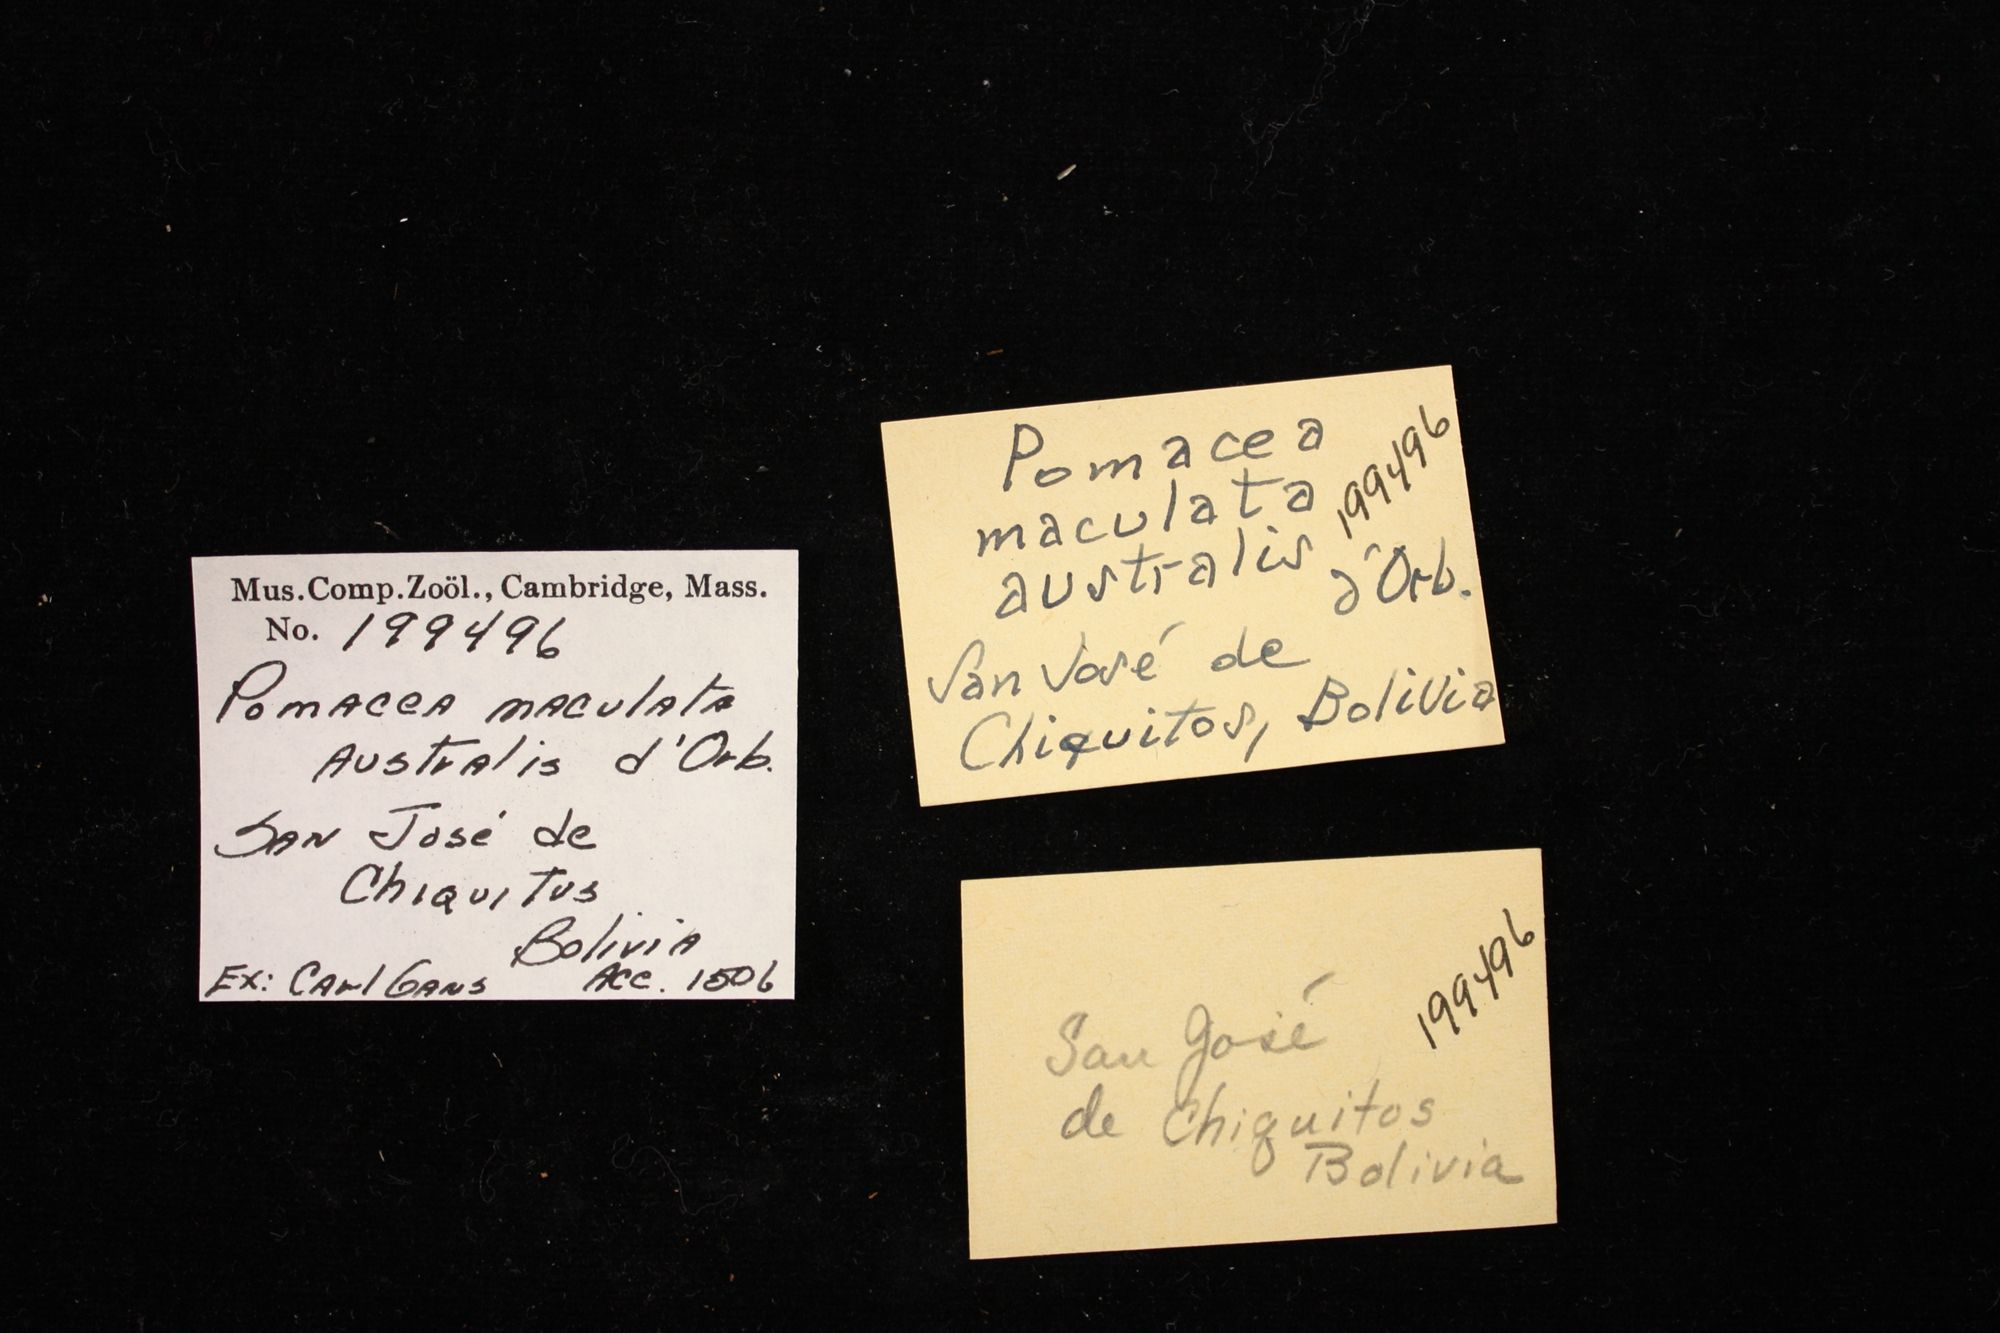 Mus.Comp.Zoöl., Cambridge, Mass.
No. 199496
Pomacea maculata
australis d'Orb.
San José de
Chiquitus
Bolivia
Ex: Carl Gans Acc. 1506
Pomacea
maculata
australis
d'Orb.
199496
San José de
Chiquitos, Bolivia
199496
San José
de Chiquitos
Bolivia